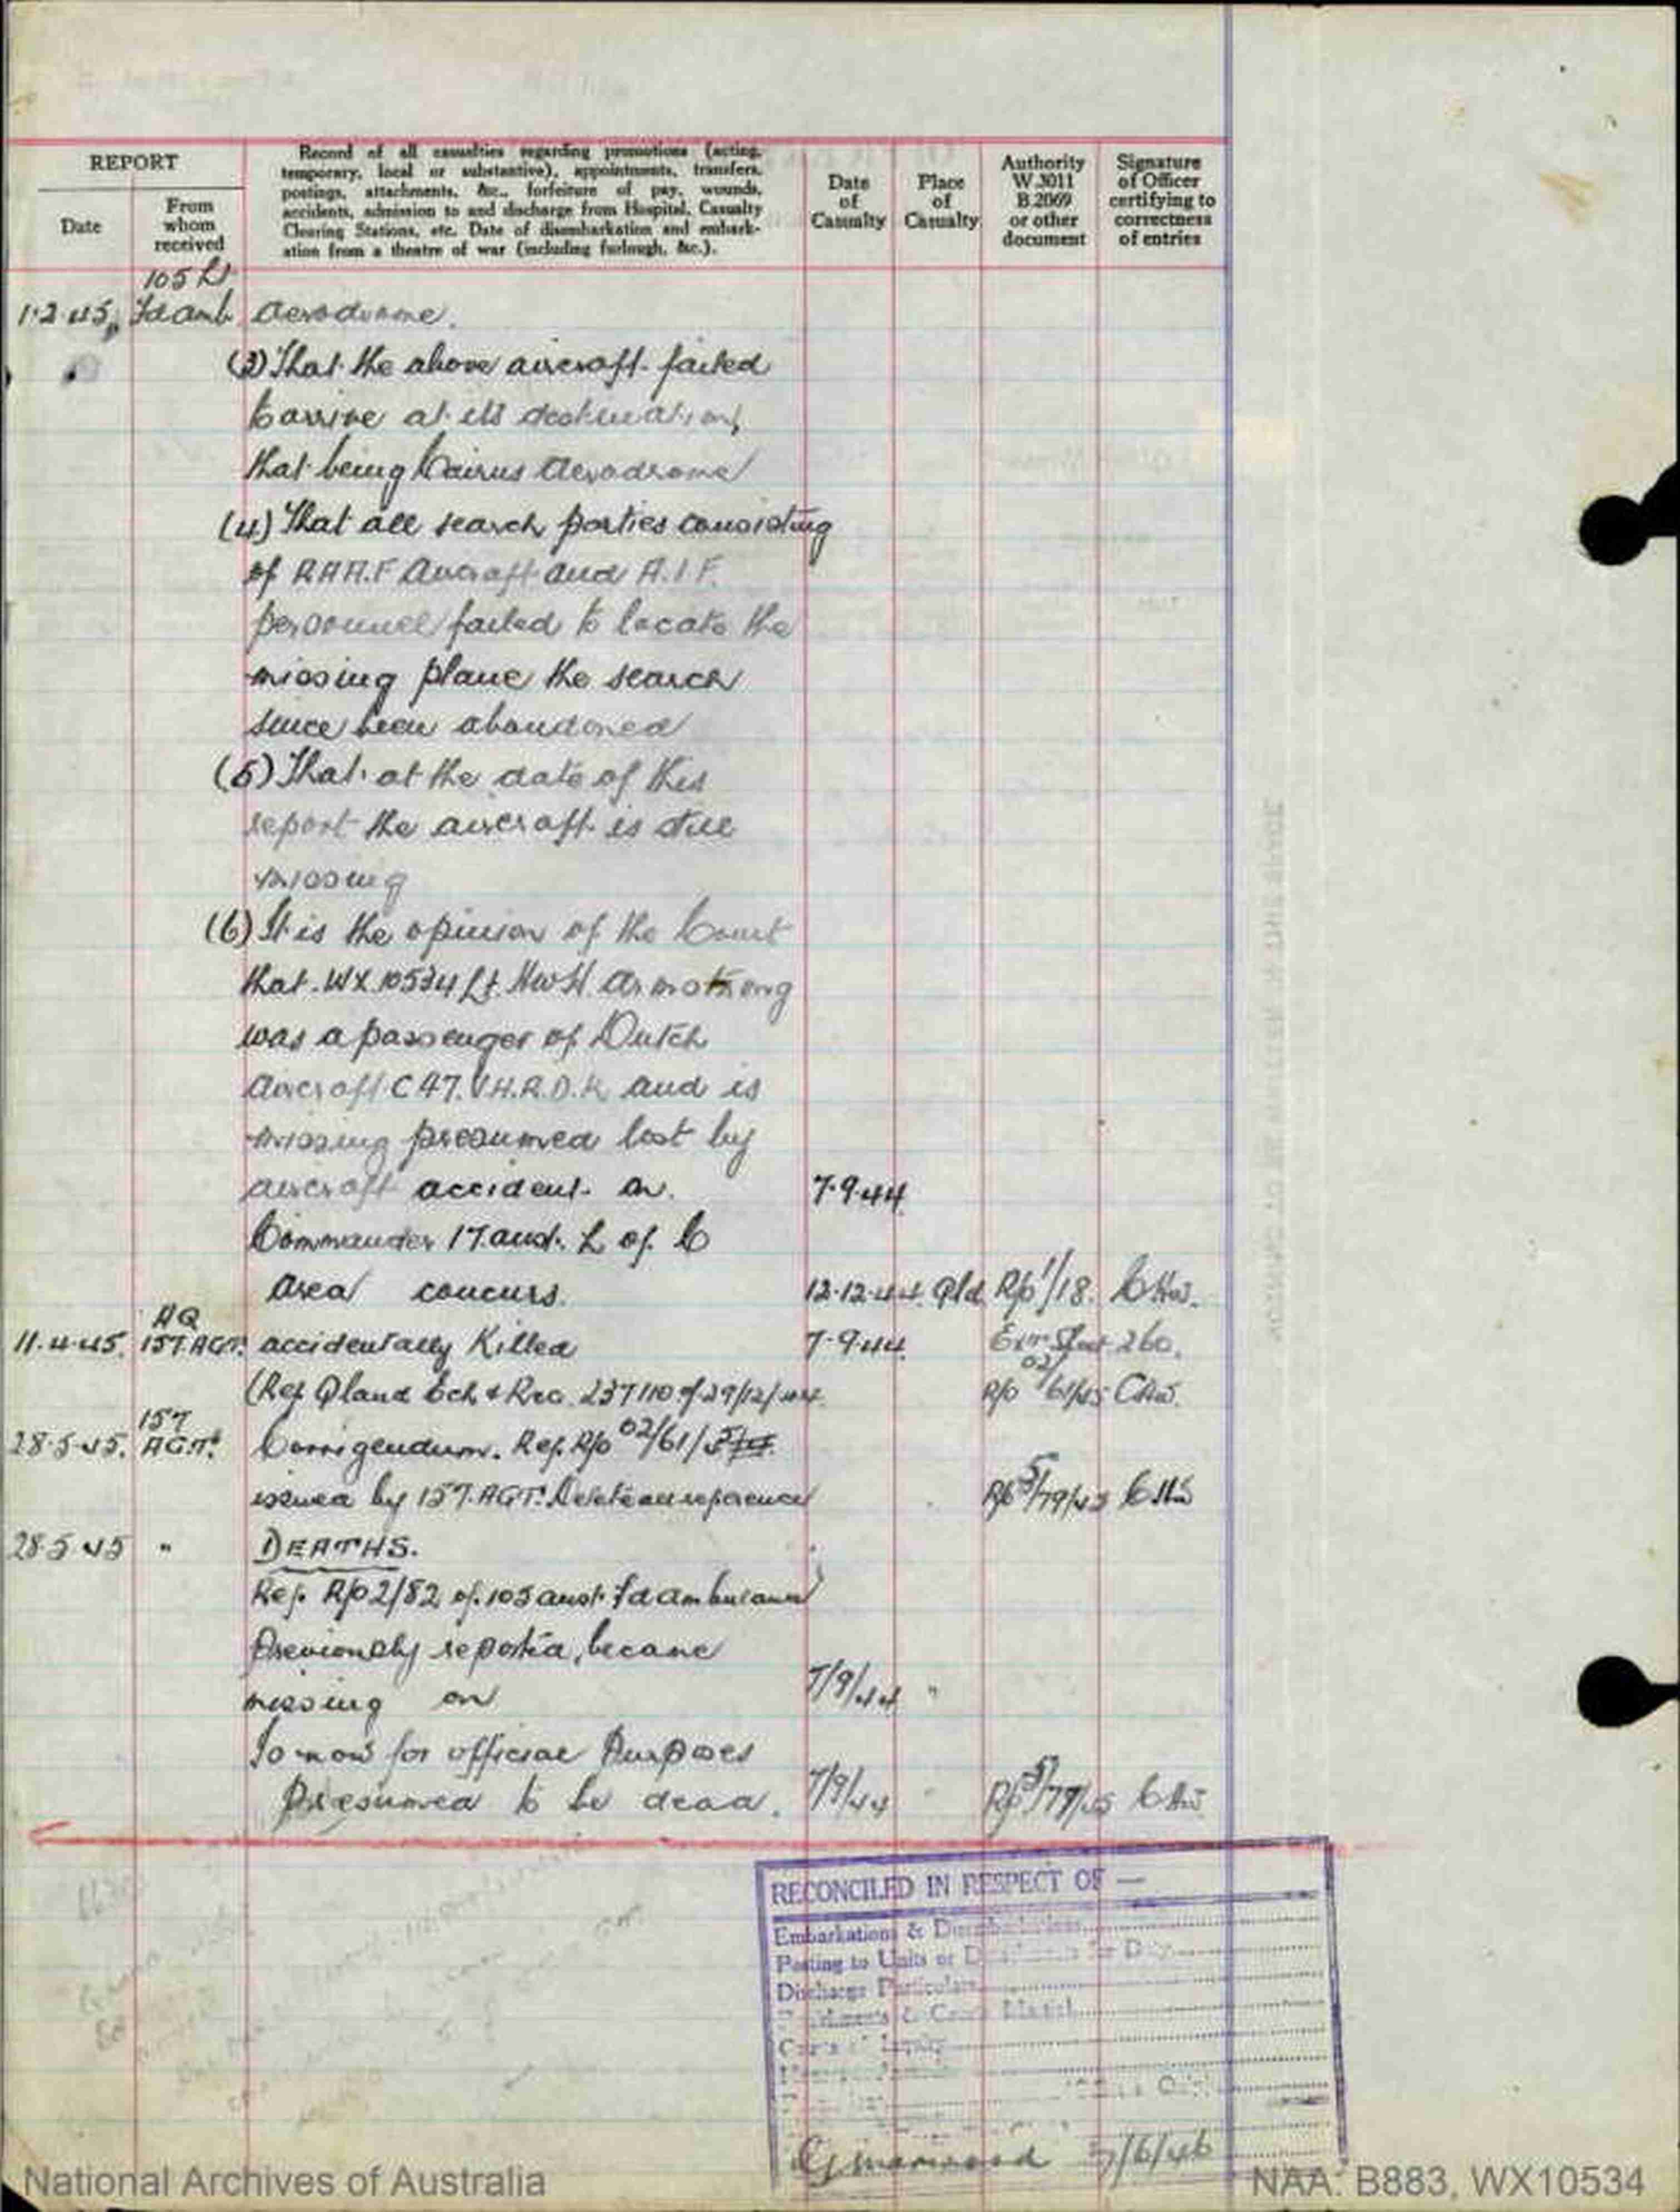 REPORT
Date
From
whom
received
Record of all casualties regarding promotions (acting,
temporary, local or substantive), appointments, transfers,
postings, attachments, &c., forfeiture of pay, wounds,
accidents, admission to and discharge from Hospital, Casualty
Clearing Stations, etc. Date of disembarkation and embark-
ation from a theatre of war (including furlough, &c.).
Date
of
Casualty
Place
of
Casualty
Authority
W.3011
B.2069
or other
document
Signature
of Officer
certifying to
correctness
of entries
105
1.2.45 Fd Amb Aerodrome.
(3) That the above aircraft failed
to arrive at its destination,
that being Cairns Aerodrome
(4) That all search parties consisting
of R.A.A.F Aircraft and A.I.F.
personnel failed to locate the
missing plane the search
since been abandoned
(5) That at the date of this
report the aircraft is still
missing
(6) It is the opinion of the Court
that WX 10534 Lt. H.W.H. Armstrong
was a passenger of Dutch
Aircraft C47. V.H.R.D.K and is
missing presumed lost by
aircraft accident on. 7.9.44.
Commander 17. aust. L of C
Area concurs. 12.12.44. Qld R/o 1/18.
AQ
11.4.45. 157.AGT. accidentally Killed 7.9.44. 260.
(Ref Qland Ech & Rec. 237110 of 29/12/44 R/o 02/61/45
157
28.5.45. A.G.T. Corrigendum. Ref. R/o 02/61/45
issued by 157.AGT. Delete all reference R/o 5/79/45
28.5.45 " DEATHS.
Ref. R/o 2/82 of 105 aust. Fd Ambulance
Previously reported, became
missing on 7/9/44 "
Is now for official Purposes
Presumed to be dead. 7/9/44 " R/o 5/79/45
RECONCILED IN RESPECT OF —
Embarkations & Disembarkations
Posting to Units or Detachments for Duty
Discharge Particulars
5/6/46
National Archives of Australia
NAA: B883, WX10534